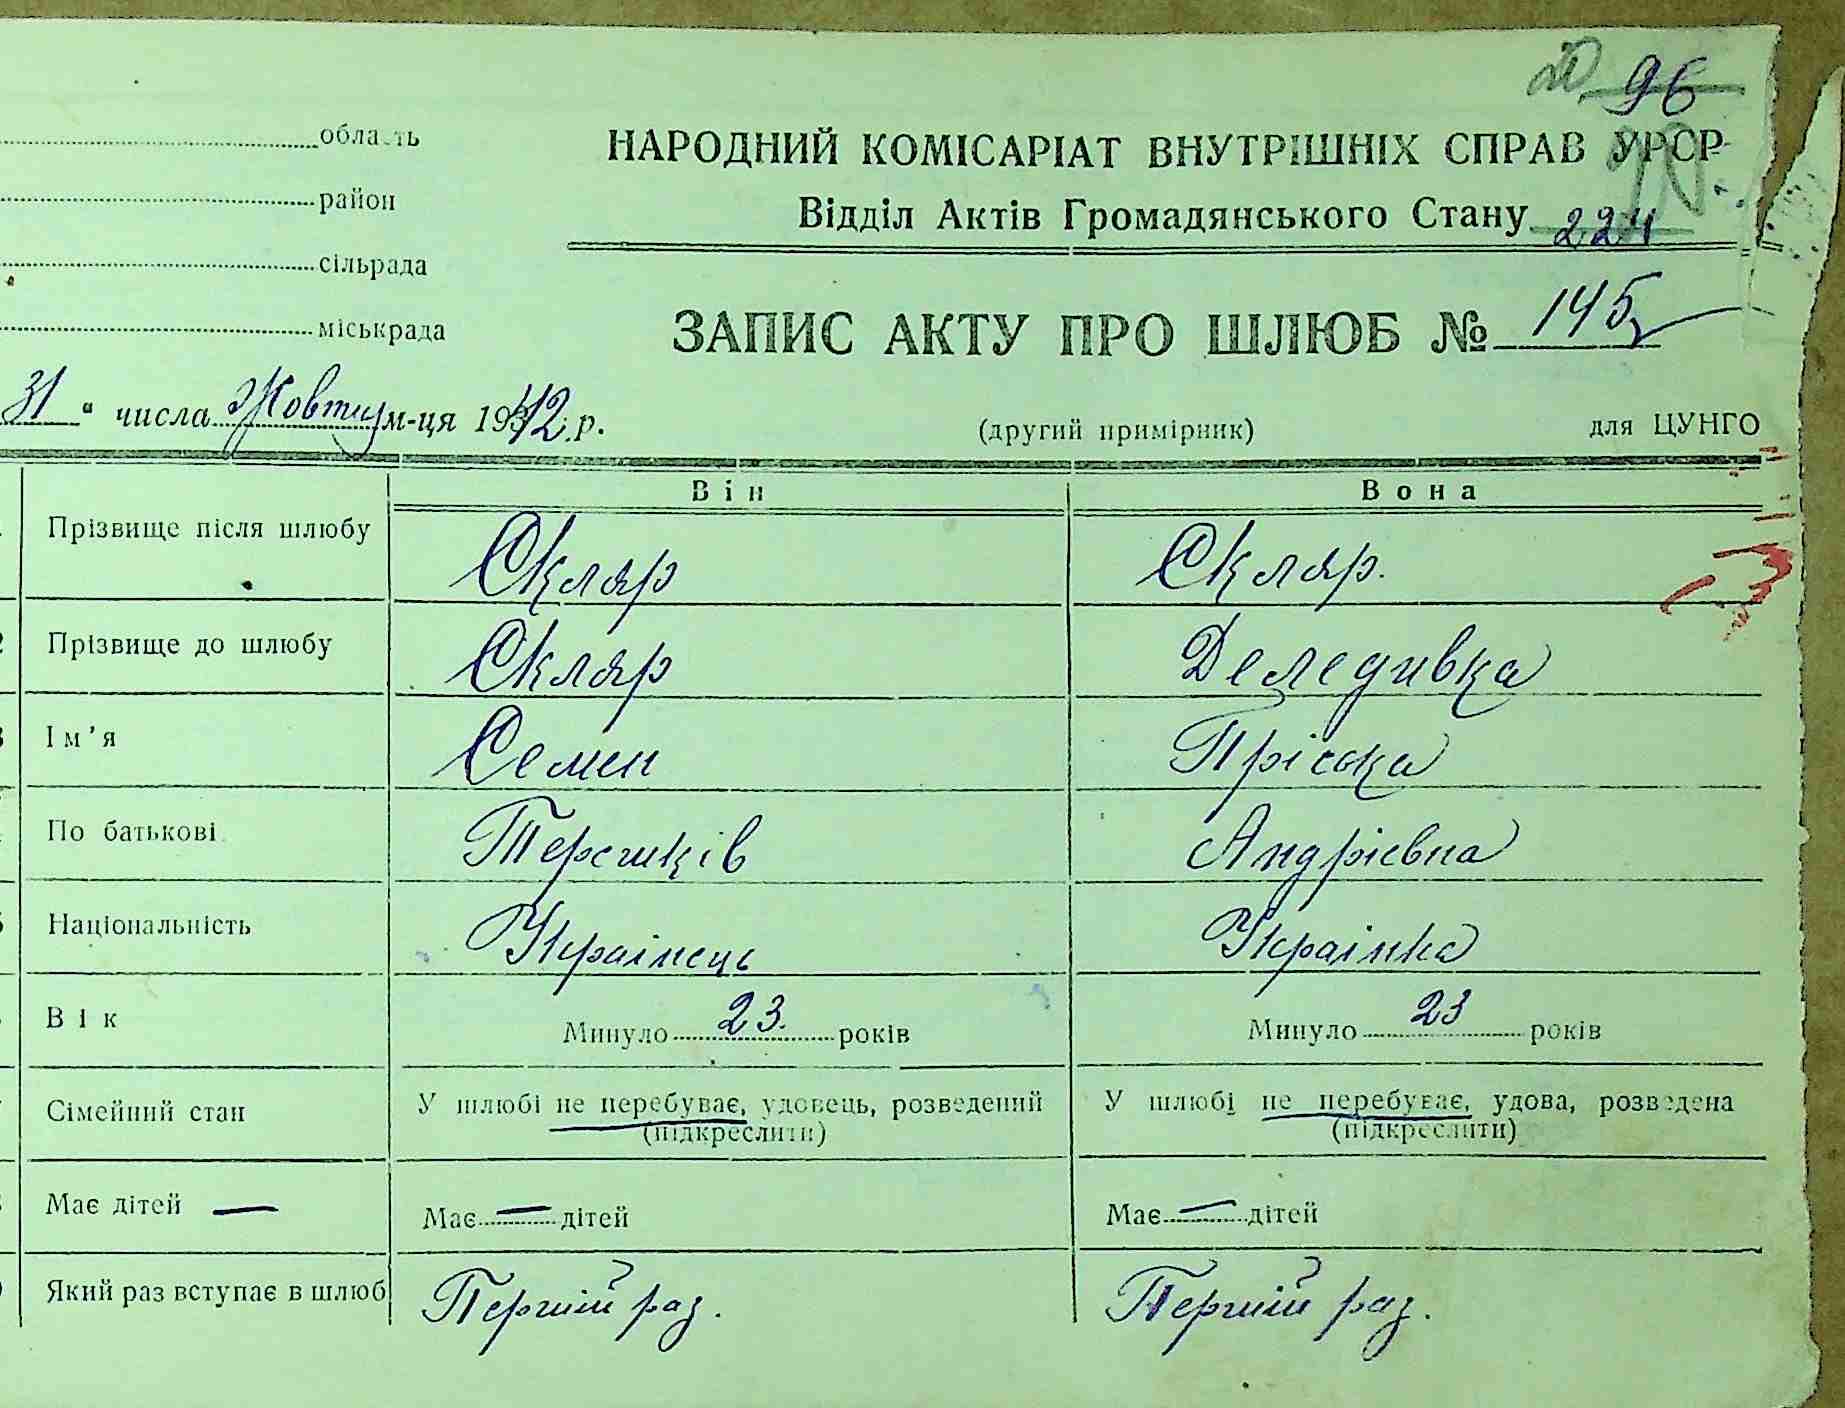 96
НАРОДНИЙ КОМІСАРІАТ ВНУТРІШНІХ СПРАВ УРСР
область
район
Відділ Актів Громадянського Стану 224
сільрада
міськрада
ЗАПИС АКТУ ПРО ШЛЮБ № 145
31 " числа Жовтня м-ця 1942 р.
(другий примірник) для ЦУНГО
Він Вона
Прізвище після шлюбу Скляр Скляр.
2 Прізвище до шлюбу Скляр Деледивка
3 Ім'я Семен Пріська
По батькові Андрієвна
5 Національність Українець Українка
Вік Минуло 23. років Минуло 23 років
7 Сімейний стан У шлюбі не перебуває, удовець, розведений У шлюбі не перебуває, удова, розведена
(підкреслити) (підкреслити)
Має дітей — Має — дітей Має — дітей
Який раз вступає в шлюб Перший раз. Перший раз.